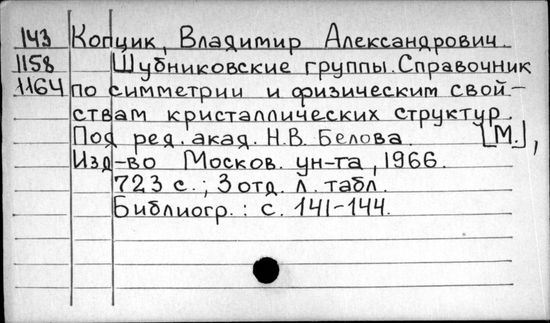 143 Копцик, Владимир Александрович.
1158 Шубниковские группы. Справочник
1164 по симметрии и физическим свой-
ствам кристаллических структур.
Под ред. акад. Н.В. Белова. [М.],
Изд-во Москов. ун-та, 1966.
723 с.; 3 отд. л. табл.
Библиогр.: с. 141-144.